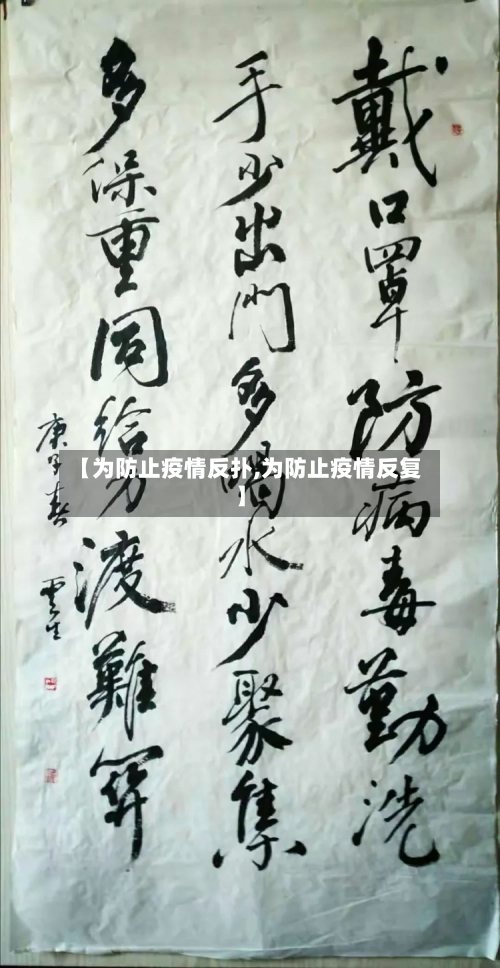 戴口罩防病毒勤洗
手少出門多喝水少聚集
多保重同给力渡難関
庚子春 雲生
【为防止疫情反扑,为防止疫情反复
】